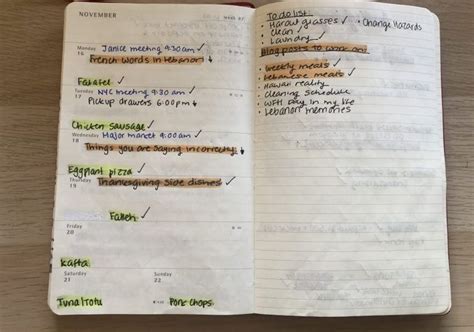 NOVEMBER
WEEK 47
Monday
16
Janice meeting 9:30am ✓
French words in Lebanon
Falafel
Tuesday
17
NYC meeting 9:30 am ✓
Pickup drawers 6:00pm
Chicken Sausage ✓
Wednesday
18
Major market 9:00am ✓
Things you are saying incorrectly
Eggplant pizza ✓
Thursday
19
Thanksgiving Side dishes ✓
Fatteh ✓
Friday
20
Kafta
Saturday
21
Sunday
22
Tuna/Tofu
Pork Chops
To do list:
• Harout glasses ✓
• Change Hazards
• Clean ✓
• Laundry ✓
Blog posts to work on:
• Weekly meals ✓
• Lebanese meals ✓
• Hawaii reality
• Cleaning Schedule
• WFH Day in my life
• Lebanon memories